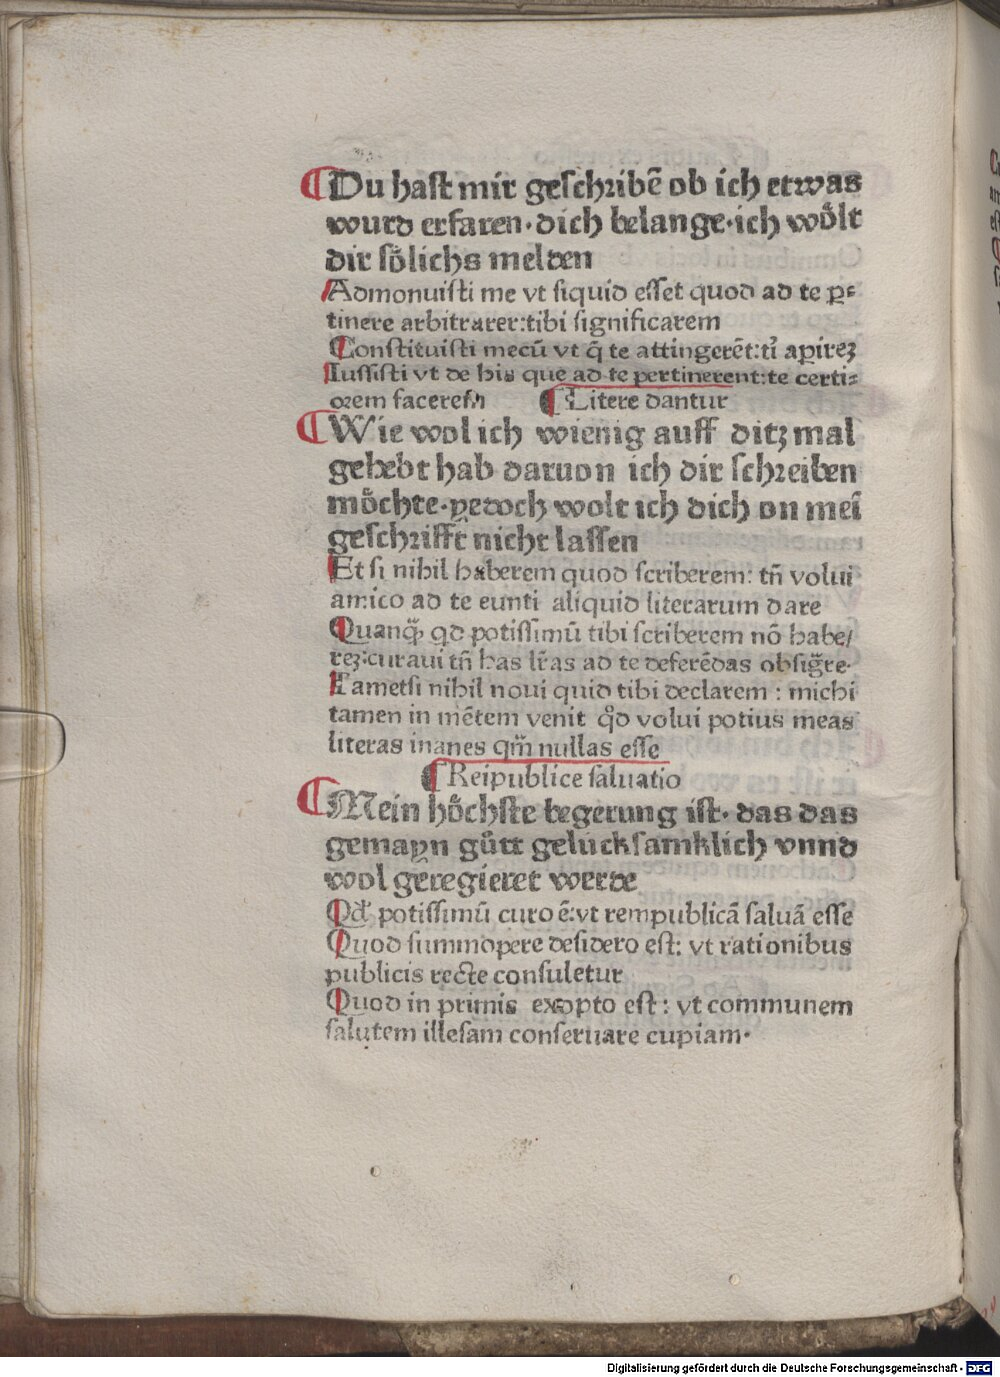 ¶Du hast mir geschribē ob ich etwas
wurd erfaren·dich belange·ich woͤlt
dir soͤlichs melden
Admonuisti me vt siquid esset quod ad te ꝑ⸗
tinere arbitrarer:tibi significarem
Constituisti mecū vt q̄ te attingerēt:ti apireꝫ
Iussisti vt de his que ad te pertinerent:te certi⸗
orem facerem ¶Litere dantur
¶Wie wol ich wienig auff ditz mal
gehebt hab daruon ich dir schreiben
moͤchte·yedoch wolt ich dich on mei̅
geschrifft nicht lassen
Et si nihil haberem quod scriberem: tn̄ volui
amico ad te eunti aliquid literarum dare
Quanq̄ꝫ qd potissimū tibi scriberem nō habe/
reꝫ:curaui tn̄ has lr̄as ad te deferēdas obsig̅re·
Tametsi nihil noui quid tibi declarem : michi
tamen in mētem venit qͦd volui potius meas
literas inanes qm̄ nullas esse
¶Reipublice saluatio
¶Mein hoͤchste begerung ist· das das
gemayn guͤtt gelucksamklich vnnd
wol geregieret werde
Qd̄ potissimū curo ē:vt rempublicā saluā esse
Quod summopere desidero est: vt rationibus
publicis recte consuletur
Quod in primis exopto est : vt communem
salutem illesam conseruare cupiam·
Digitalisierung gefördert durch die Deutsche Forschungsgemeinschaft - DFG